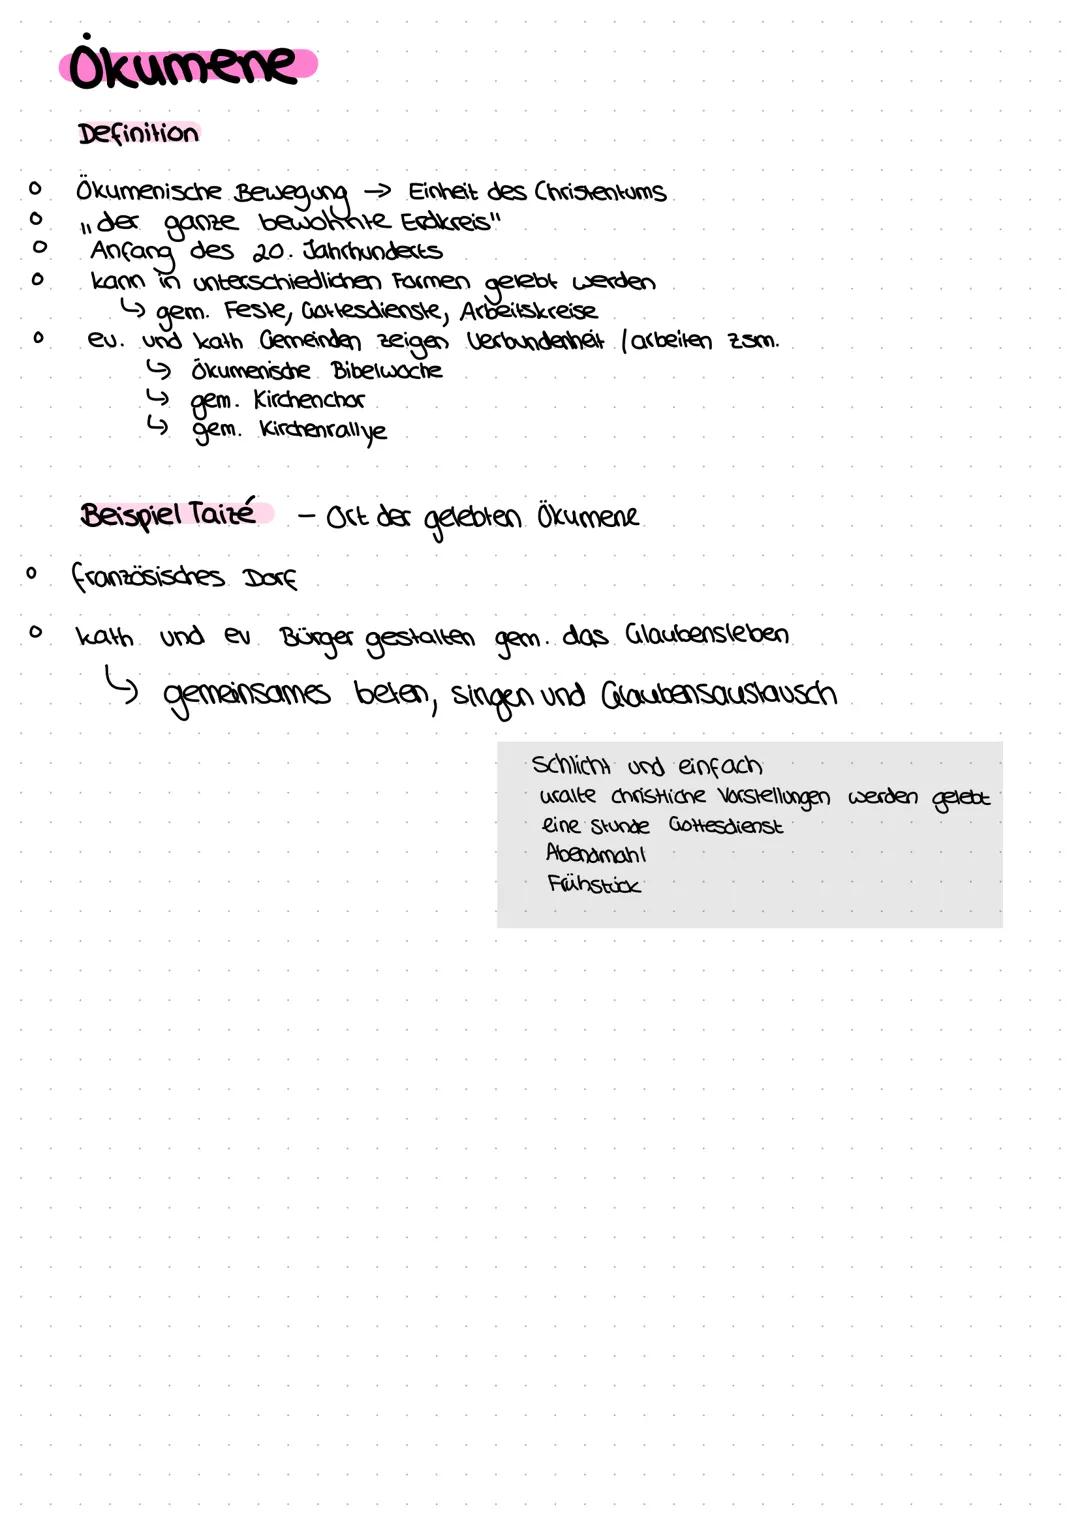 Ökumene
Definition
Ökumenische Bewegung → Einheit des Christentums
„der ganze bewohnte Erdkreis"
Anfang des 20. Jahrhunderts
kann in unterschiedlichen Formen gelebt werden
↳ gem. Feste, Gottesdienste, Arbeitskreise
ev. und kath Gemeinden zeigen Verbundenheit / arbeiten zsm.
↳ Ökumenische Bibelwoche
↳ gem. Kirchenchor
↳ gem. Kirchenrallye
Beispiel Taizé – Ort der gelebten Ökumene
französisches Dorf
kath und ev Bürger gestalten gem. das Glaubensleben
↳ gemeinsames beten, singen und Glaubensaustausch
Schlicht und einfach
uralte christliche Vorstellungen werden gelebt
eine Stunde Gottesdienst
Abendmahl
Frühstück